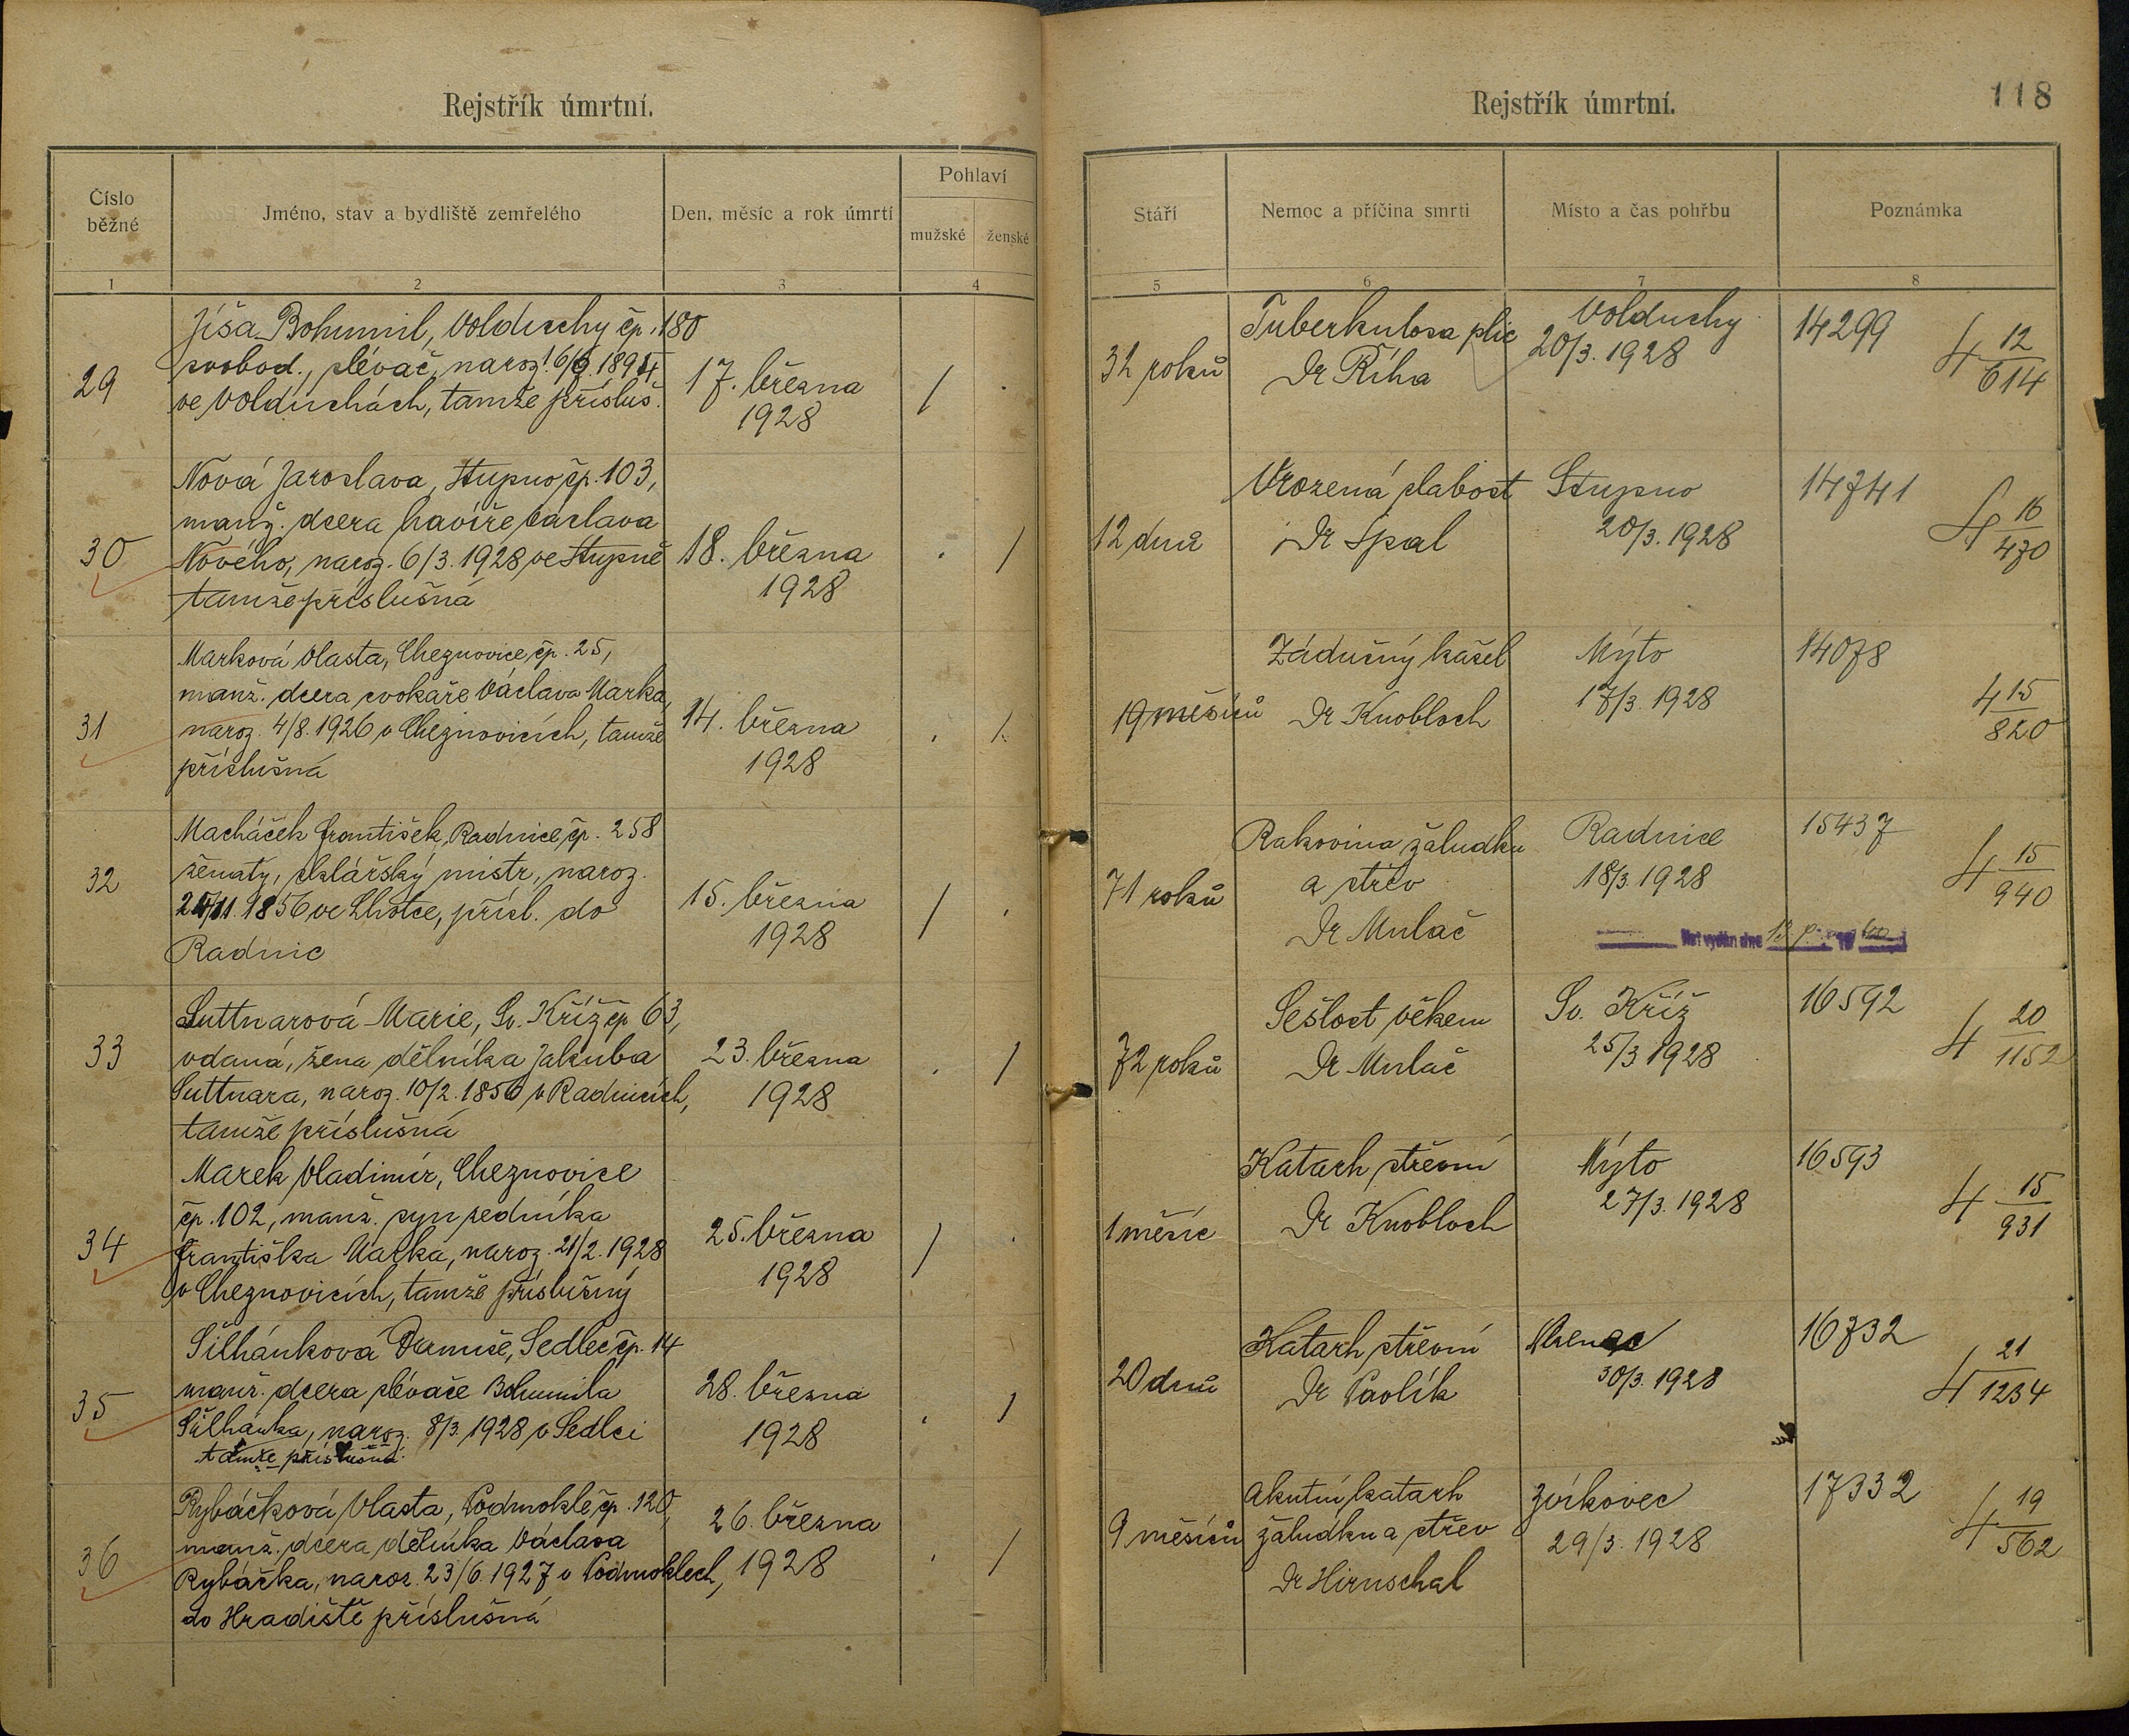 Rejstřík úmrtní.
Číslo běžné
Jméno, stav a bydliště zemřelého
Den, měsíc a rok úmrtí
Pohlaví
mužské
ženské
1
2
3
4
Jíša Bohumil, Volduchy čp. 180
29
svobod., slévač, naroz. 16/9. 1894
ve Volduchách, tamže přísluš.
17. března
1928
/ .
Nová Jaroslava, Stupno čp. 103,
manž. dcera havíře Václava
30
Nového, naroz. 6/3. 1928 ve Stupně
tamže příslušná
18. března
1928
. /
Marková Vlasta, Cheznovice čp. 25,
manž. dcera cvokaře Václava Marka,
31
naroz. 4/8. 1926 v Cheznovicích, tamže
příslušná
14. března
1928
. /
Macháček František, Radnice čp. 258
32
ženatý, sklářský mistr, naroz.
11. 1856 ve Lhotce, přísl. do
Radnic
15. března
1928
/ .
Suttnarová Marie, Sv. Kříž čp 63,
33
vdaná, žena dělníka Jakuba
Suttnara, naroz. 10/2. 1856 v Radnicích,
tamže příslušná
23. března
1928
. /
Marek Vladimír, Cheznovice
čp. 102, manž. syn zedníka
34
Františka Marka, naroz. 21/2. 1928
v Cheznovicích, tamže příslušný
25. března
1928
/ .
Šilhánková Danuše, Sedlec čp. 14
35
manž. dcera slévače Bohumila
Šilhánka, naroz. 8/3. 1928 v Sedlci
tamže příslušná.
28. března
1928
. /
Rybáčková Vlasta, Podmokle čp. 120,
manž. dcera dělníka Václava
36
Rybáčka, naroz. 23/6. 1927 v Podmoklech,
do Hradiště příslušná
26. března
1928
. /
Rejstřík úmrtní.
118
Stáří
Nemoc a příčina smrti
Místo a čas pohřbu
Poznámka
5
6
7
8
31 roků
Tuberkulosa plic
Dr Říha
Volduchy
20/3. 1928
14299
4 12/614
12 dnů
Vrozená slabost
Dr Špal
Stupno
20/3. 1928
14741
4 16/470
19 měsíců
Zádušný kašel
Dr Knobloch
Mýto
17/3. 1928
14078
4 15/820
71 roků
Rakovina žaludku
a střev
Dr Mulač
Radnice
18/3. 1928
15437
4 15/940
list vydán dne 13. 19
72 roků
Sešlost věkem
Dr Mulač
Sv. Kříž
25/3 1928
16592
4 20/1152
1 měsíc
Katarh střevní
Dr Knobloch
Mýto
27/3. 1928
16593
4 15/931
20 dnů
Katarh střevní
Dr Pavlík
30/3. 1928
16732
4 21/1234
9 měsíců
Akutní katarh
žaludku a střev
Dr Hirnschal
Zvíkovec
29/3. 1928
17332
4 19/562